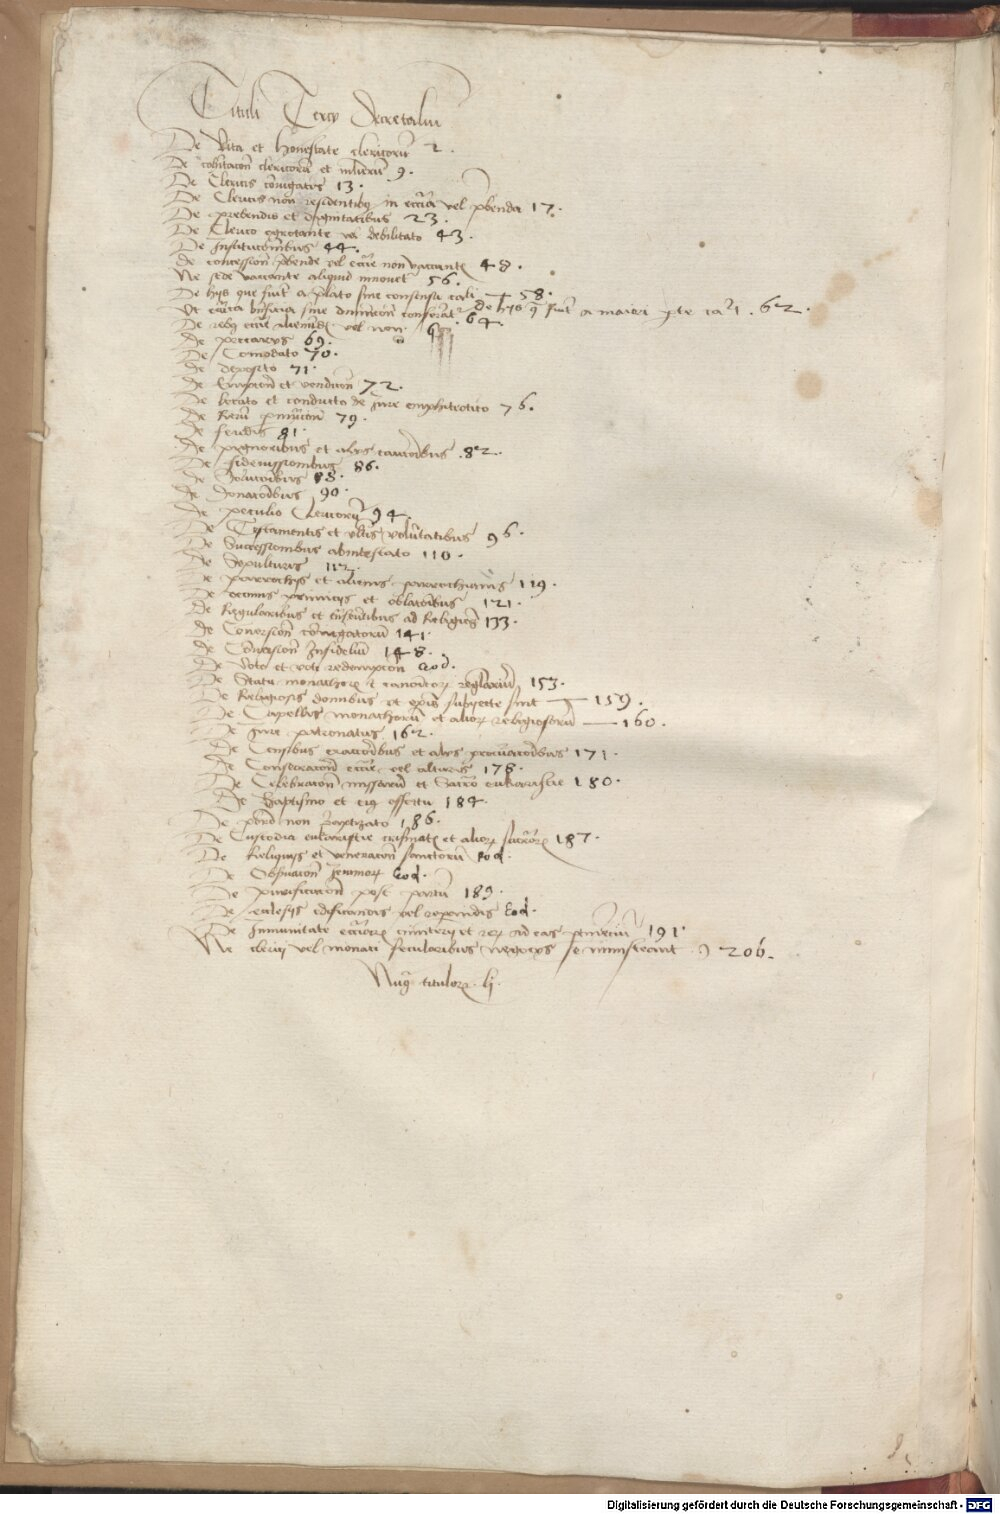 Tituli Tercij decretaliū
De vita et honestate clericorū 2.
De cohitacōn clericorū et mlierū 9.
De Clericis cōiugatis 13.
De Clericis non residentibus in ecclīa vel p̄benda 17.
De prebendis et dignitatibus 23.
De Clerico egrotante vel debilitato 43.
De Institucōnibus 44.
de concessiōn p̄bende vel ecclīe non vacantis 48.
Ne sede vacante aliquid innouet 56.
De hys que fiūt a p̄lato sine consensu capli 58.
de hys q̄ fiūt a maiori p̄te capli. 62.
Ut ecclīastica bn̄ficia sine diminucōn conferāt 64.
De rebus eccle alienandis vel non
de precarijs 69.
De Comodato 70.
de deposito 71.
de Empcion et vendicōn 72.
de locato et conducto de Jure emphiteotico 76.
de Rerū pmutacōn 79.
de feudis 81.
de pignoribus et alijs caucōibus .82.
De fideiussionibus 86.
de Solucōibus 88.
de donacōibus 90.
de peculio Clericorū 94.
De Testamentis et vltis volūtatibus 96.
De Successionibus abintestato 110.
De Sepulturis 112.
De parrochijs et alienis parrochianis 119.
De decimis primicijs et oblacōibus 121.
De Regularibus et trāseūtibus ad Religionē 133.
de Conersiōn coniugatorū 141.
de Conuersiōn Infideliū 148.
De Voto et voti redempcōn eod.
De Statu monachorum et canōicorum regulariū 153.
De Religiosis domibus vt ep̄is subiecte sint 159.
De Capellis monachorū et aliorum religiosorū 160.
De Jure patronatus 162.
De Censibus exaccōibus et alijs procuracōibus 171.
de Consecracōn ecclīe vel altaris 178.
De Celebracōn missarum et Sacrō eukaristie 180.
De Baptismo et eius effectu 184.
De pbrō non baptizato 186.
De Custodia eukaristie crismatis et aliorum sacrōrum 187.
De Reliquijs et veneracōn sanctorū eod.
De Obseruacōn Jeiunorum eod.
De purificacōn post partū 189.
De ecclesijs edificandis vel reparandis Eod.
De Immunitate ecclīarum cimiterij et rerum ad eas ptinenciū 191.
Ne clerici vel monaci secularibus negocijs se immisceant 206.
Nūs titulorum. lj.
Digitalisierung gefördert durch die Deutsche Forschungsgemeinschaft - DFG